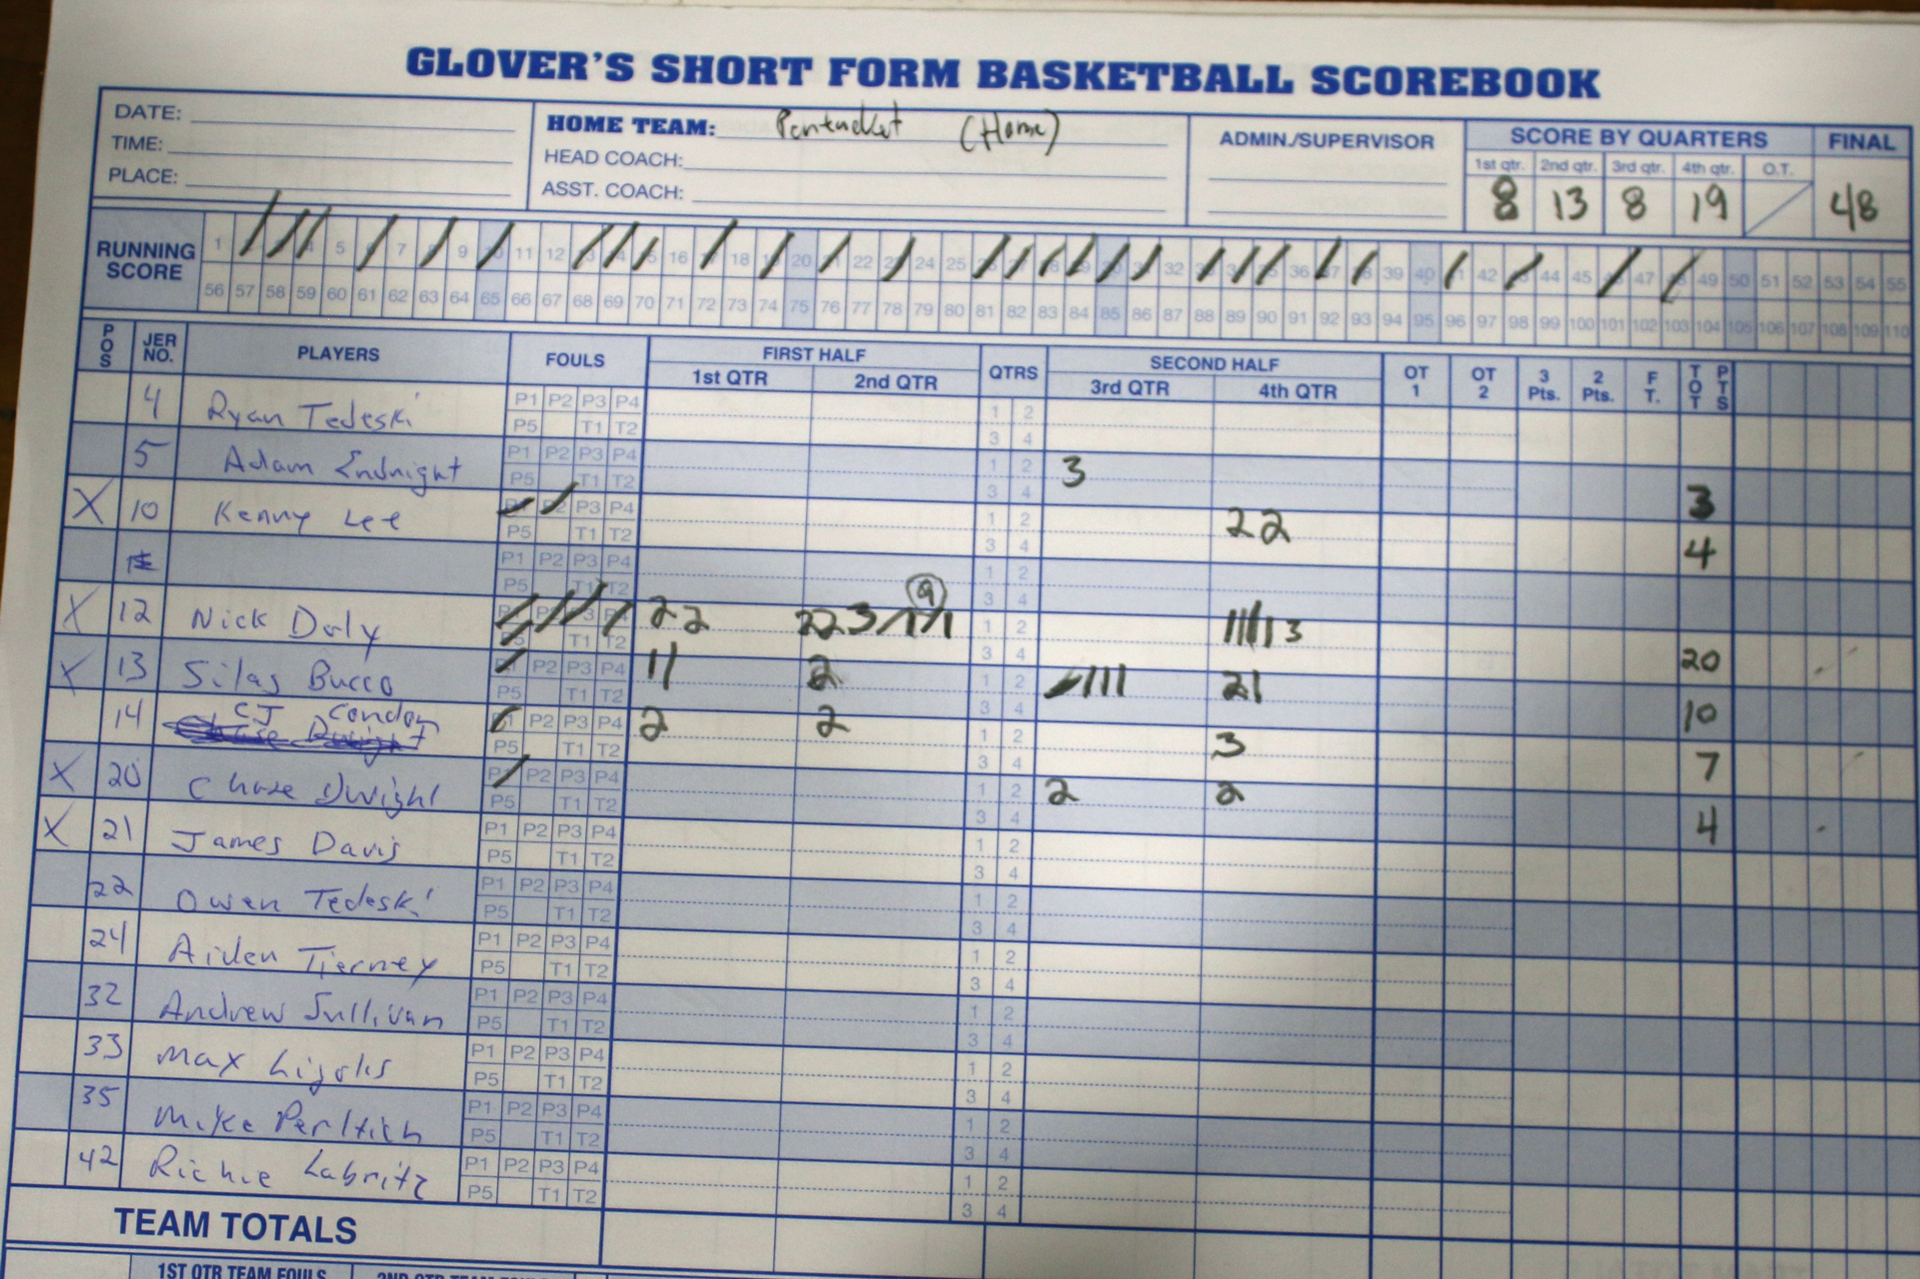 GLOVER'S SHORT FORM BASKETBALL SCOREBOOK
DATE:
TIME:
PLACE:
HOME TEAM: Pentucket (Home)
HEAD COACH:
ASST. COACH:
ADMIN./SUPERVISOR
SCORE BY QUARTERS FINAL
1st qtr. 2nd qtr. 3rd qtr. 4th qtr. O.T.
8 13 8 19 48
RUNNING SCORE
1 2 3 4 5 6 7 8 9 10 11 12 13 14 15 16 17 18 19 20 21 22 23 24 25 26 27 28 29 30 31 32 33 34 35 36 37 38 39 40 41 42 43 44 45 46 47 48 49 50 51 52 53 54 55
56 57 58 59 60 61 62 63 64 65 66 67 68 69 70 71 72 73 74 75 76 77 78 79 80 81 82 83 84 85 86 87 88 89 90 91 92 93 94 95 96 97 98 99 100 101 102 103 104 105 106 107 108 109 110
POS JER NO. PLAYERS FOULS FIRST HALF QTRS SECOND HALF OT 1 OT 2 3 Pts. 2 Pts. F T. TOT PTS
1st QTR 2nd QTR 3rd QTR 4th QTR
4 Ryan Tedeski P1 P2 P3 P4 1 2
P5 T1 T2 3 4
5 Adam Endnight P1 P2 P3 P4 1 2 3 3
P5 T1 T2 3 4
X 10 Kenny Lee P1 P2 P3 P4 1 2 22 4
P5 T1 T2 3 4
P1 P2 P3 P4 1 2
P5 T1 T2 3 4
X 12 Nick Daly P1 P2 P3 P4 22 223 9 1 2 20
P5 T1 T2 3 4
X 13 Silas Bucco P1 P2 P3 P4 11 2 1 2 111 21 10
P5 T1 T2 3 4
14 CJ Condon P1 P2 P3 P4 2 2 1 2 3 7
P5 T1 T2 3 4
X 20 Chase Dwight P1 P2 P3 P4 1 2 2 2 4
P5 T1 T2 3 4
X 21 James Davis P1 P2 P3 P4 1 2
P5 T1 T2 3 4
22 Owen Tedeski P1 P2 P3 P4 1 2
P5 T1 T2 3 4
24 Aiden Tierney P1 P2 P3 P4 1 2
P5 T1 T2 3 4
32 Andrew Sullivan P1 P2 P3 P4 1 2
P5 T1 T2 3 4
33 Max P1 P2 P3 P4 1 2
P5 T1 T2 3 4
35 Mike P1 P2 P3 P4 1 2
P5 T1 T2 3 4
42 Richie Labritz P1 P2 P3 P4 1 2
P5 T1 T2 3 4
TEAM TOTALS
1ST QTR TEAM FOULS